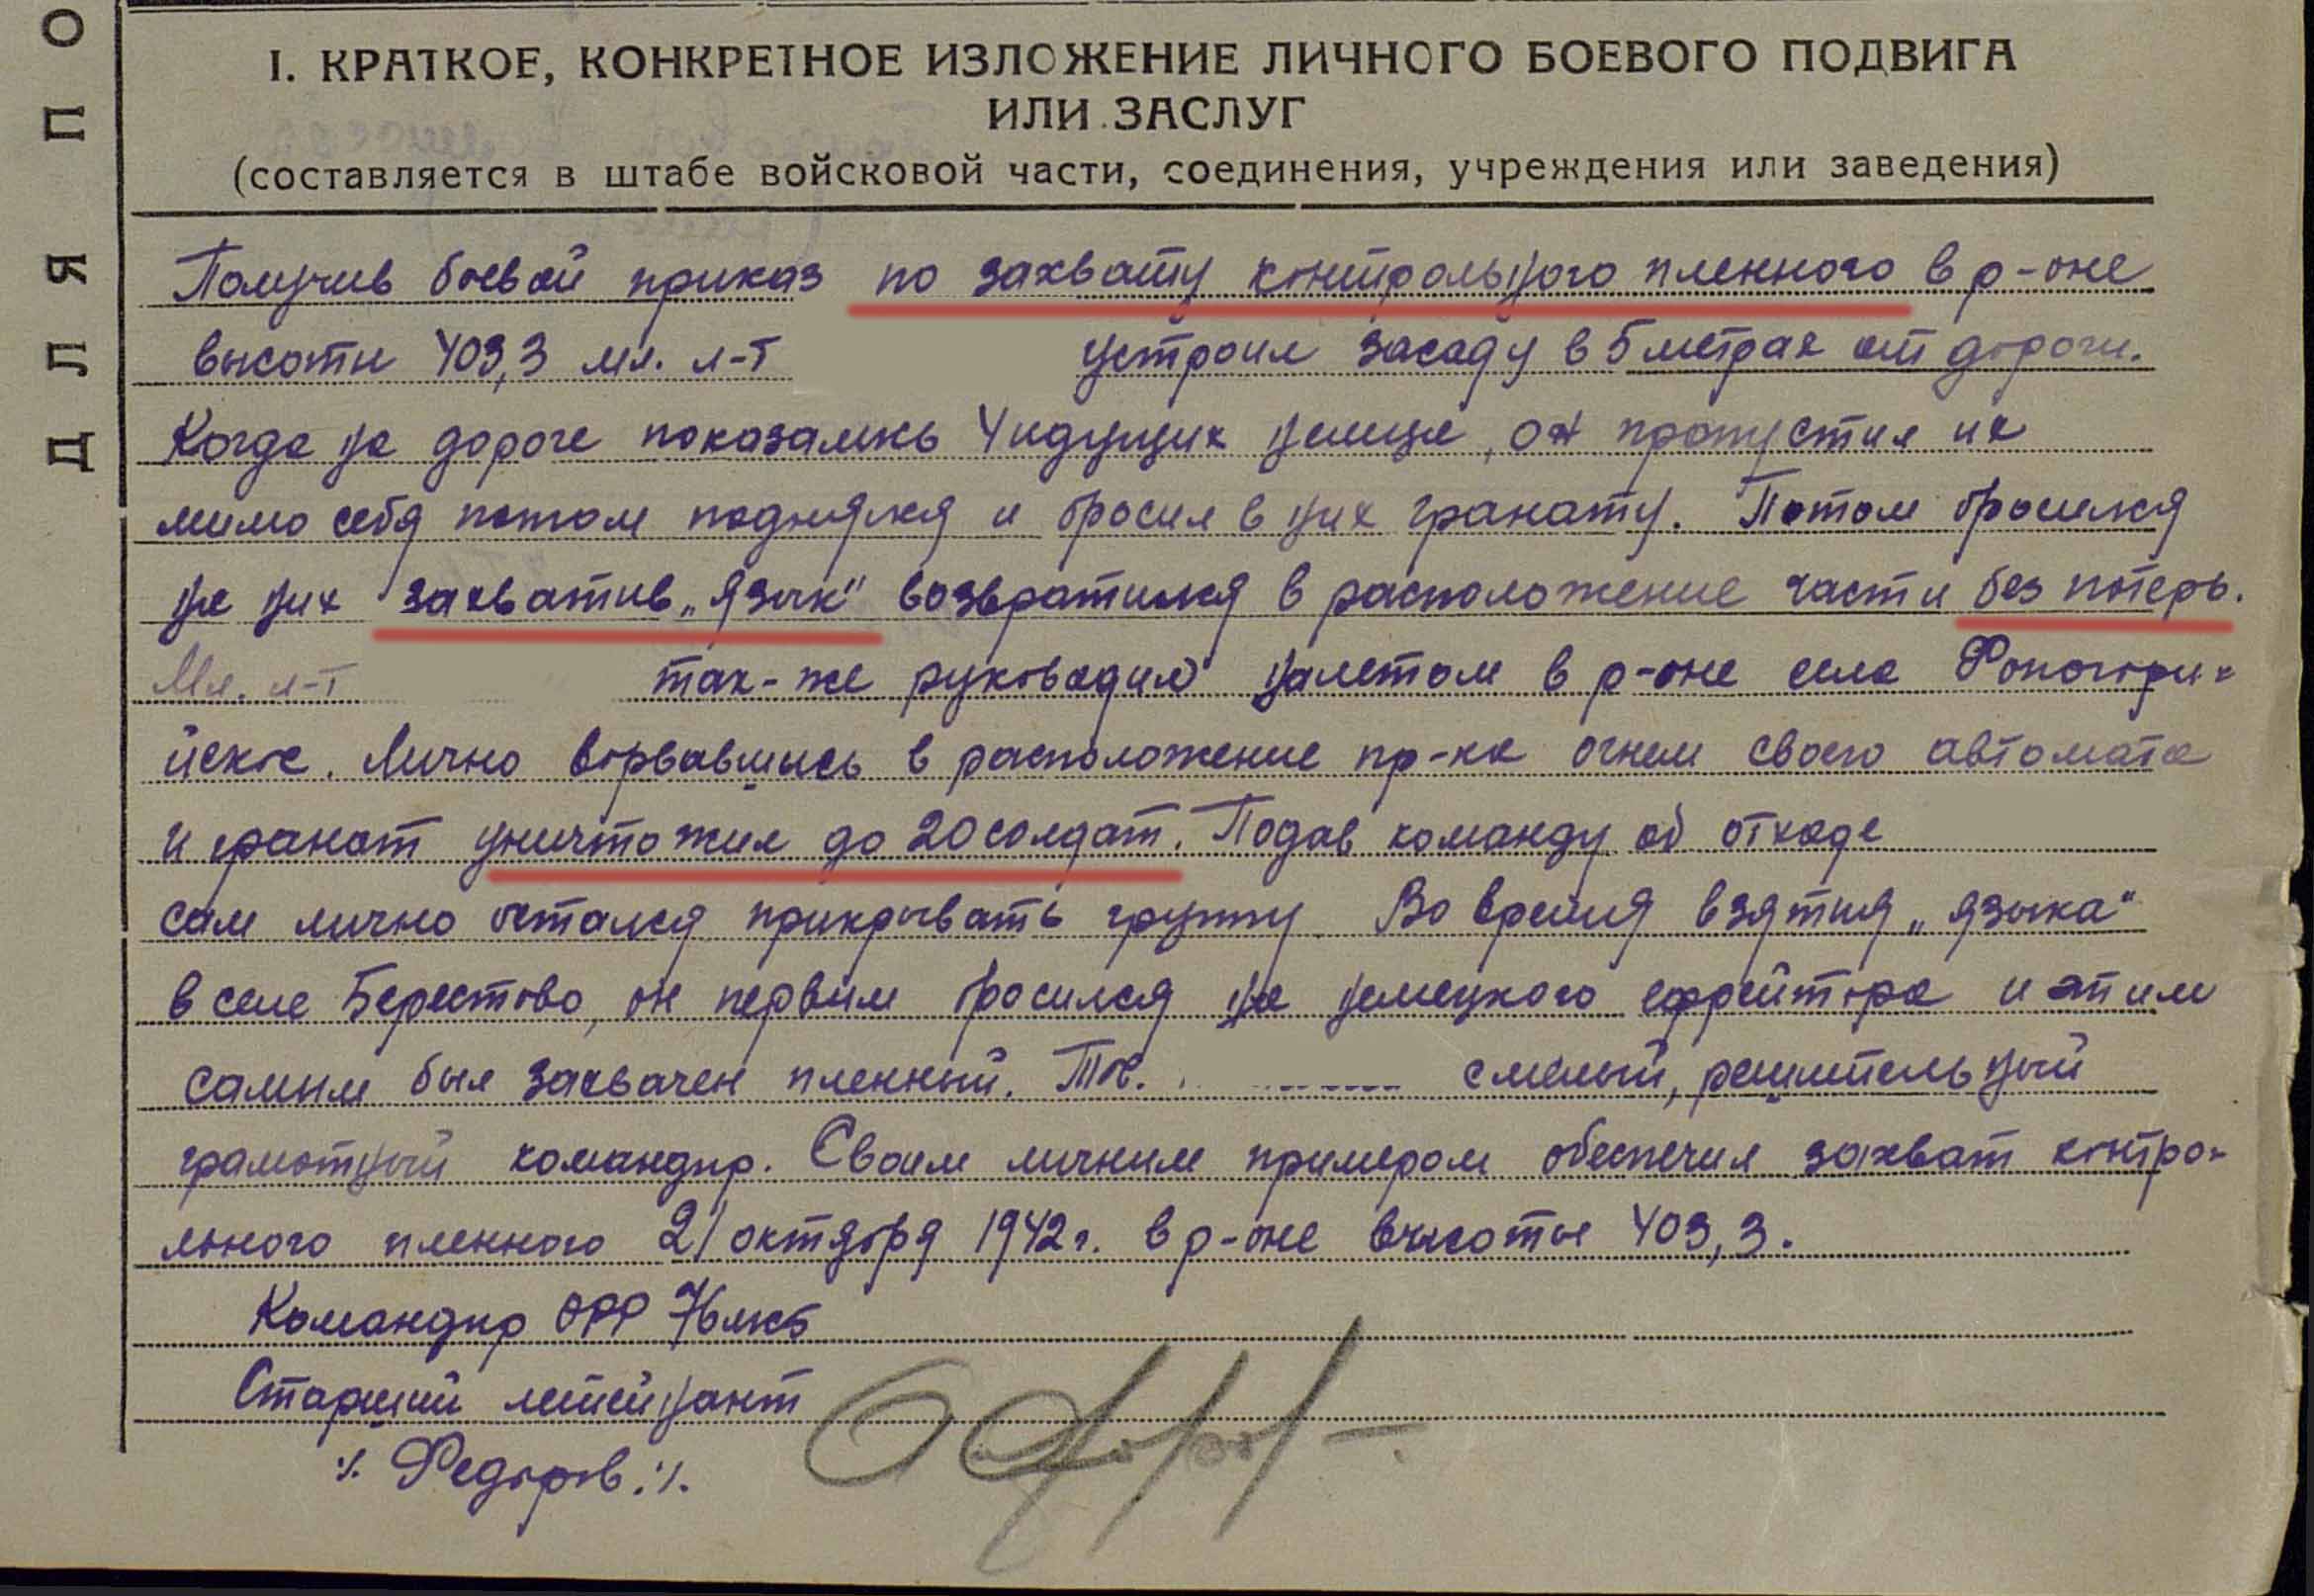 ДЛЯ ПО
I. КРАТКОЕ, КОНКРЕТНОЕ ИЗЛОЖЕНИЕ ЛИЧНОГО БОЕВОГО ПОДВИГА
ИЛИ ЗАСЛУГ
(составляется в штабе войсковой части, соединения, учреждения или заведения)
Получив боевой приказ по захвату контрольного пленного в р-оне
высоты 403,3 мл. л-т устроил засаду в 5 метрах от дороги.
Когда на дороге показались 4 идущих немца, он пропустил их
мимо себя потом поднялся и бросил в них гранату. Потом бросился
на них захватив „язык" возвратился в расположение части без потерь.
Мл. л-т так-же руководил налетом в р-оне села Фоногори-
йское. Лично ворвавшись в расположение пр-ка огнем своего автомата
и гранат уничтожил до 20 солдат. Подав команду об отходе
сам лично остался прикрывать группу. Во время взятия „языка"
в селе Берестово, он первым бросился на немецкого ефрейтора и этим
самым был захвачен пленный. Тов. смелый, решительный
грамотный командир. Своим личным примером обеспечил захват контро-
льного пленного 21 октября 1942 г. в р-оне высоты 403,3.
Командир ОРР 76 мсб
Старший лейтенант
/. Федоров ./.